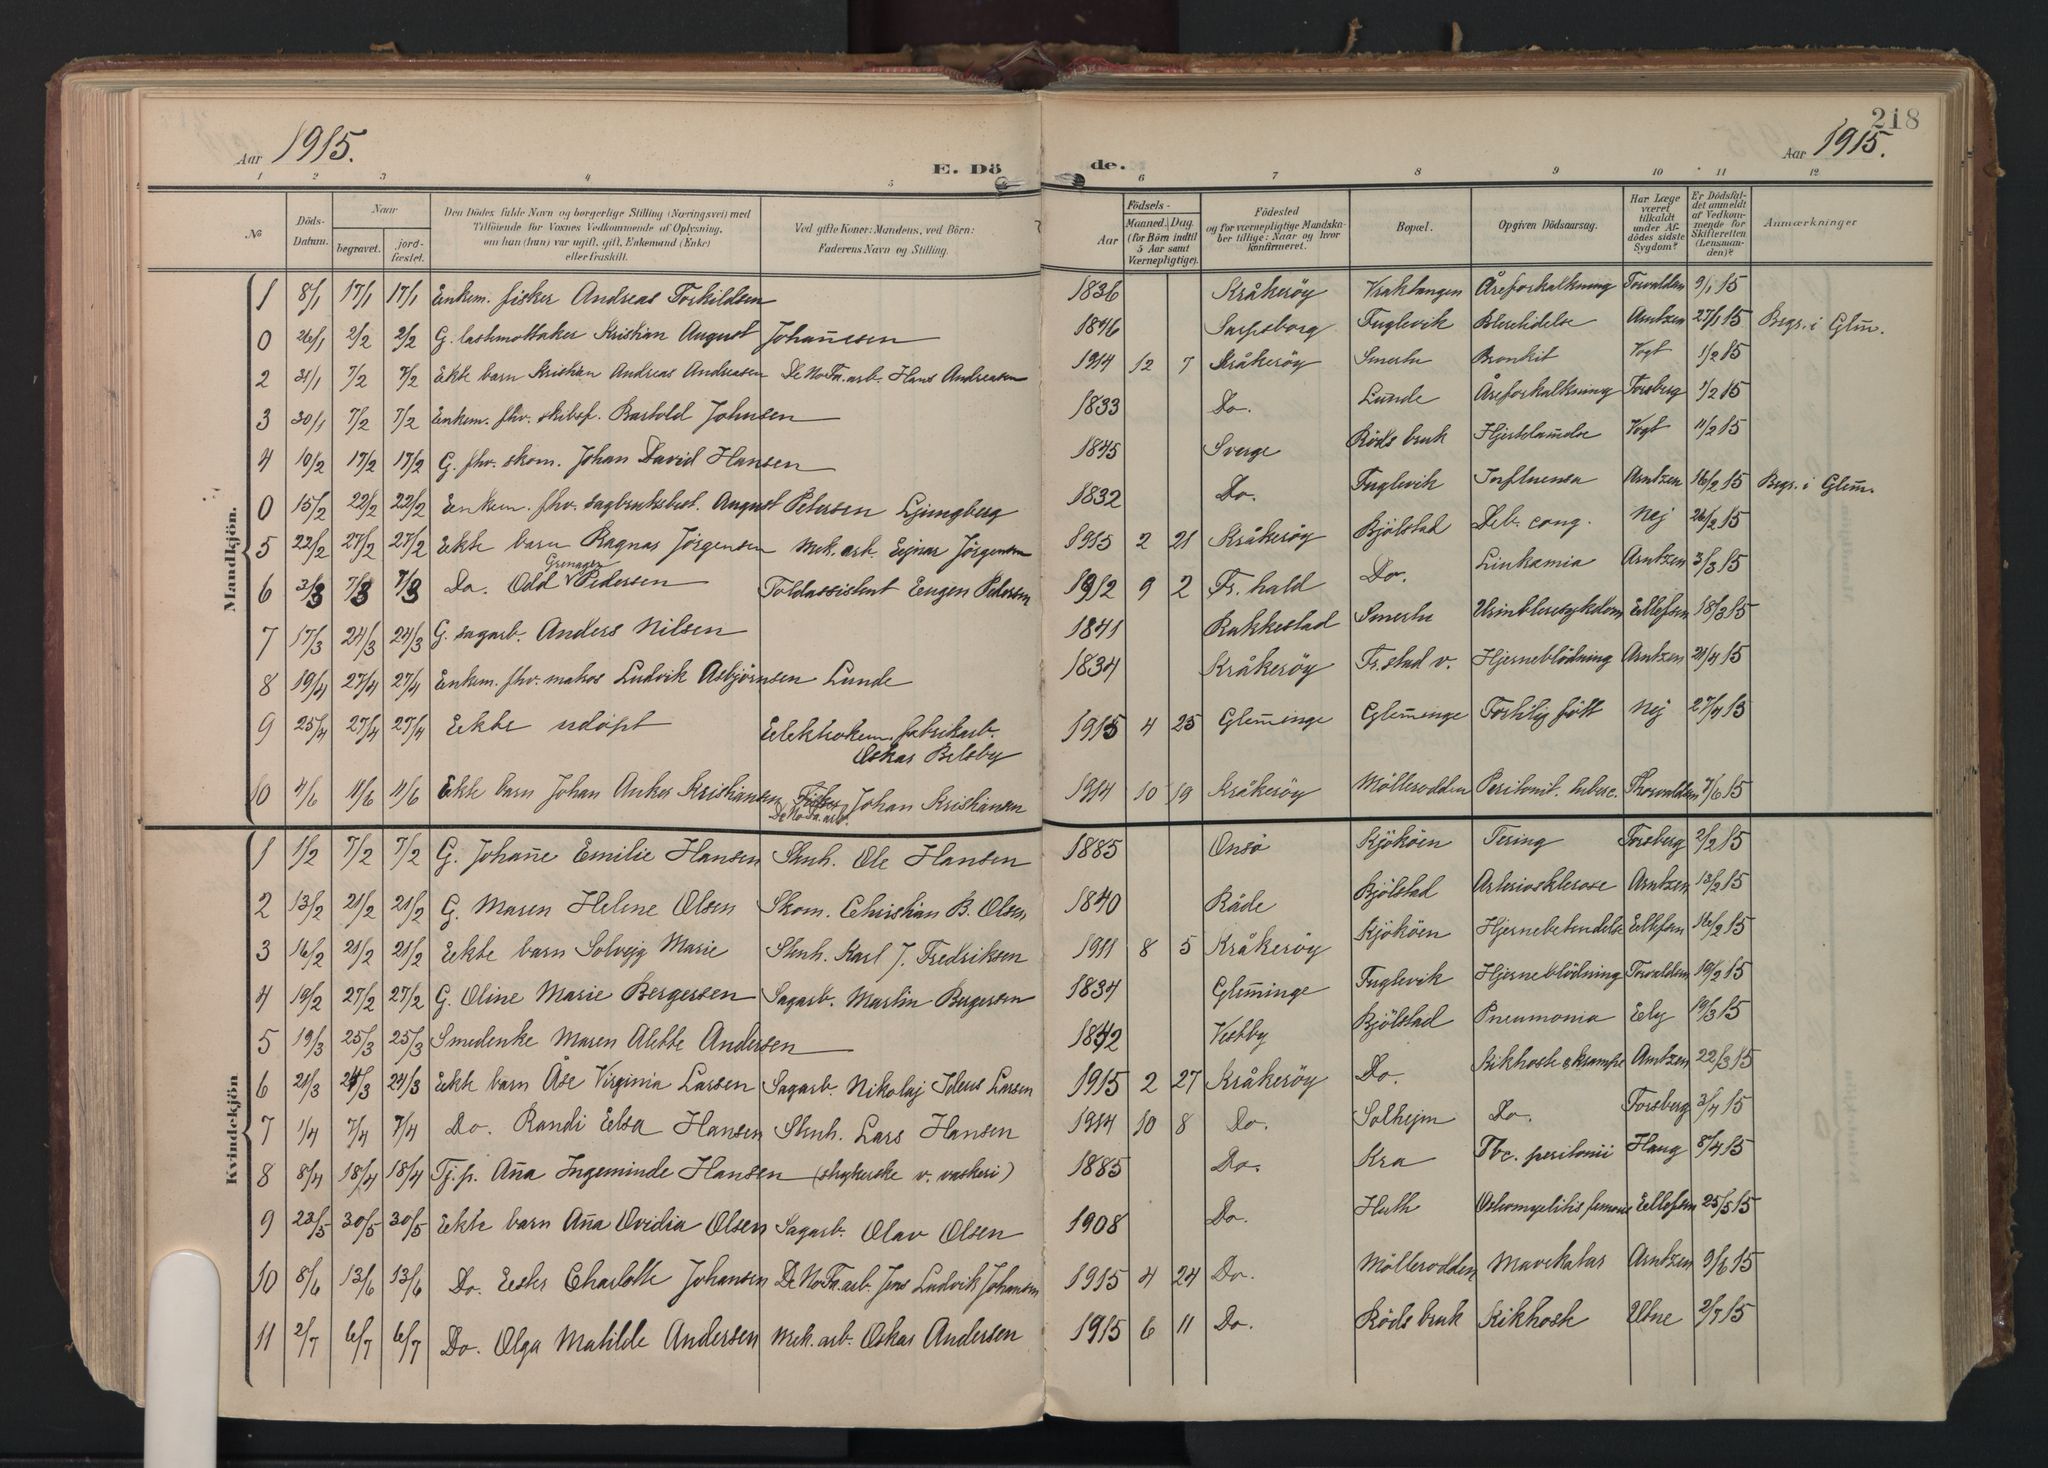 218
Aar 1915.
E. Döde.
Aar 1915.
1 2 3 4 5 6 7 8 9 10 11 12
No
Döds-Datum.
Naar
begravet.
jord-fæstet.
Den Dödes fulde Navn og borgerlige Stilling (Næringsvei) med
Tilföiende for Voxnes Vedkommende af Oplysning,
om han (hun) var ugift, gift, Enkemand (Enke)
eller fraskilt.
Ved gifte Koner: Mandens, ved Börn:
Faderens Navn og Stilling.
Födsels-
Aar
Maaned. Dag.
(for Börn indtil
5 Aar samt
Værnepligtige).
Födested
og for værnepligtige Mandska-
ber tillige: Naar og hvor
konfirmeret.
Bopæl.
Opgiven Dödsaarsag.
Har Læge
været
tilkaldt
under Af-
dödes sidste
Sygdom?
Er Dödsfal-
det anmeldt
af Vedkom-
mende for
Skifteretten
(Lensman-
den)?
Anmærkninger
Mandkjön.
1 8/1 17/1 17/1 Enkem. fisker Andreas Torkildsen 1836 Kråkeröy Vraktangen Åreforkalkning Torvalden 9/1 15
0 26/1 2/2 2/2 G. lastemottaker Kristian August Johannesen 1846 Sarpsborg Fuglevik Blærelidelse Arntzen 27/1 15 Begr. i Glem.
2 31/1 7/2 7/2 Ekte barn Kristian Andreas Andreasen De No Fa. arb. Hans Andreasen 1914 12 7 Kråkeröy Smertu Bronkit Vogt 1/2 15
3 30/1 7/2 7/2 Enkem. fhv. skibsf. Bartold Johnsen 1833 Do. Lunde Åreforkalkning Forsberg 1/2 15
4 10/2 17/2 17/2 G. fhv. skom. Johan David Hansen 1845 Sverge Röds bruk Hjertelamelse Vogt 11/2 15
0 15/2 22/2 22/2 Enkem. fhv. sagbruksbest. August Petersen Ljungberg 1832 Do. Fuglevik Influensa Arntzen 16/2 15 Begr. i Glem.
5 22/2 27/2 27/2 Ekte barn Ragnar Jörgensen Mek. arb. Ejnar Jörgensen 1915 2 21 Kråkeröy Bjölstad Deb. cong. Nej 26/2 15
6 3/3 7/3 7/3 Do. Odd Grenager Pedersen Toldassistent Eugen Pedersen 1912 9 2 Fr. hald Do. Linkamia Arntzen 3/3 15
7 17/3 24/3 24/3 G. sagarb. Anders Nilsen 1841 Rakkestad Smertu Urinblæresykdom Ellefsen 18/3 15
8 19/4 27/4 27/4 Enkem. fhv. matros Ludvik Asbjörnsen Lunde 1834 Kråkeröy Fr.stad v. Hjerneblödning Arntzen 21/4 15
9 25/4 27/4 27/4 Ekte udöpt Elektrokem. fabrikarb.
Oskar Belsby 1915 4 25 Gleminge Gleminge Fortidlig född Nej 27/4 15
10 4/6 11/6 11/6 Ekte barn Johan Anker Kristiansen Fisker De No Fa. arb. Johan Kristiansen 1914 10 19 Kråkeröy Möllerodden Peritonit. tuberc. Thorvaldsen 7/6 15
Kvindekjön
1 1/2 7/2 7/2 G. Johanne Emilie Hansen Stenh. Ole Hansen 1885 Onsö Kjököen Tering Forsberg 2/2 15
2 13/2 21/2 21/2 G. Maren Helene Olsen Skom. Christian B. Olsen 1840 Råde Bjölstad Arteriosklerose Arntzen 13/2 15
3 16/2 21/2 21/2 Ekte barn Solvejg Marie Stenh. Karl J. Fredriksen 1911 8 5 Kråkeröy Kjököen Hjernebetendelse Ellefsen 16/2 15
4 19/2 27/2 27/2 G. Oline Marie Bergersen Sagarb. Martin Bergersen 1834 Gleminge Fuglevik Hjerneblödning Torvalden 19/2 15
5 19/3 25/3 25/3 Smedenke Maren Alette Andersen 1842 Vestby Bjölstad Pneumonia Ely 19/3 15
6 21/3 24/3 24/3 Ekte barn Åse Virginia Larsen Sagarb. Nikolaj Ideus Larsen 1915 2 27 Kråkeröy Do. Kikhoste & krampe Arntzen 22/3 15
7 1/4 7/4 7/4 Do. Randi Elsa Hansen Stenh. Lars Hansen 1914 10 8 Do. Solhejm Do. Forsberg 3/4 15
8 8/4 18/4 18/4 Tj. p. Anna Ingeminde Hansen (strykerske v. vaskeri) 1885 Do. Kra Tbc. peritonii Haug 8/4 15
9 23/5 30/5 30/5 Ekte barn Anna Ovidia Olsen Sagarb. Olav Olsen 1908 Do. Huth Osteomyelitis femoris Ellefsen 25/5 15
10 8/6 13/6 13/6 Do. Ester Charlotte Johansen De No Fa. arb. Jens Ludvik Johansen 1915 4 24 Do. Möllerodden Mavekatar Arntzen 9/6 15
11 2/7 6/7 6/7 Do. Olga Matilde Andersen Mek. arb. Oskar Andersen 1915 6 11 Do. Röds bruk Kikhoste Utne 2/7 15